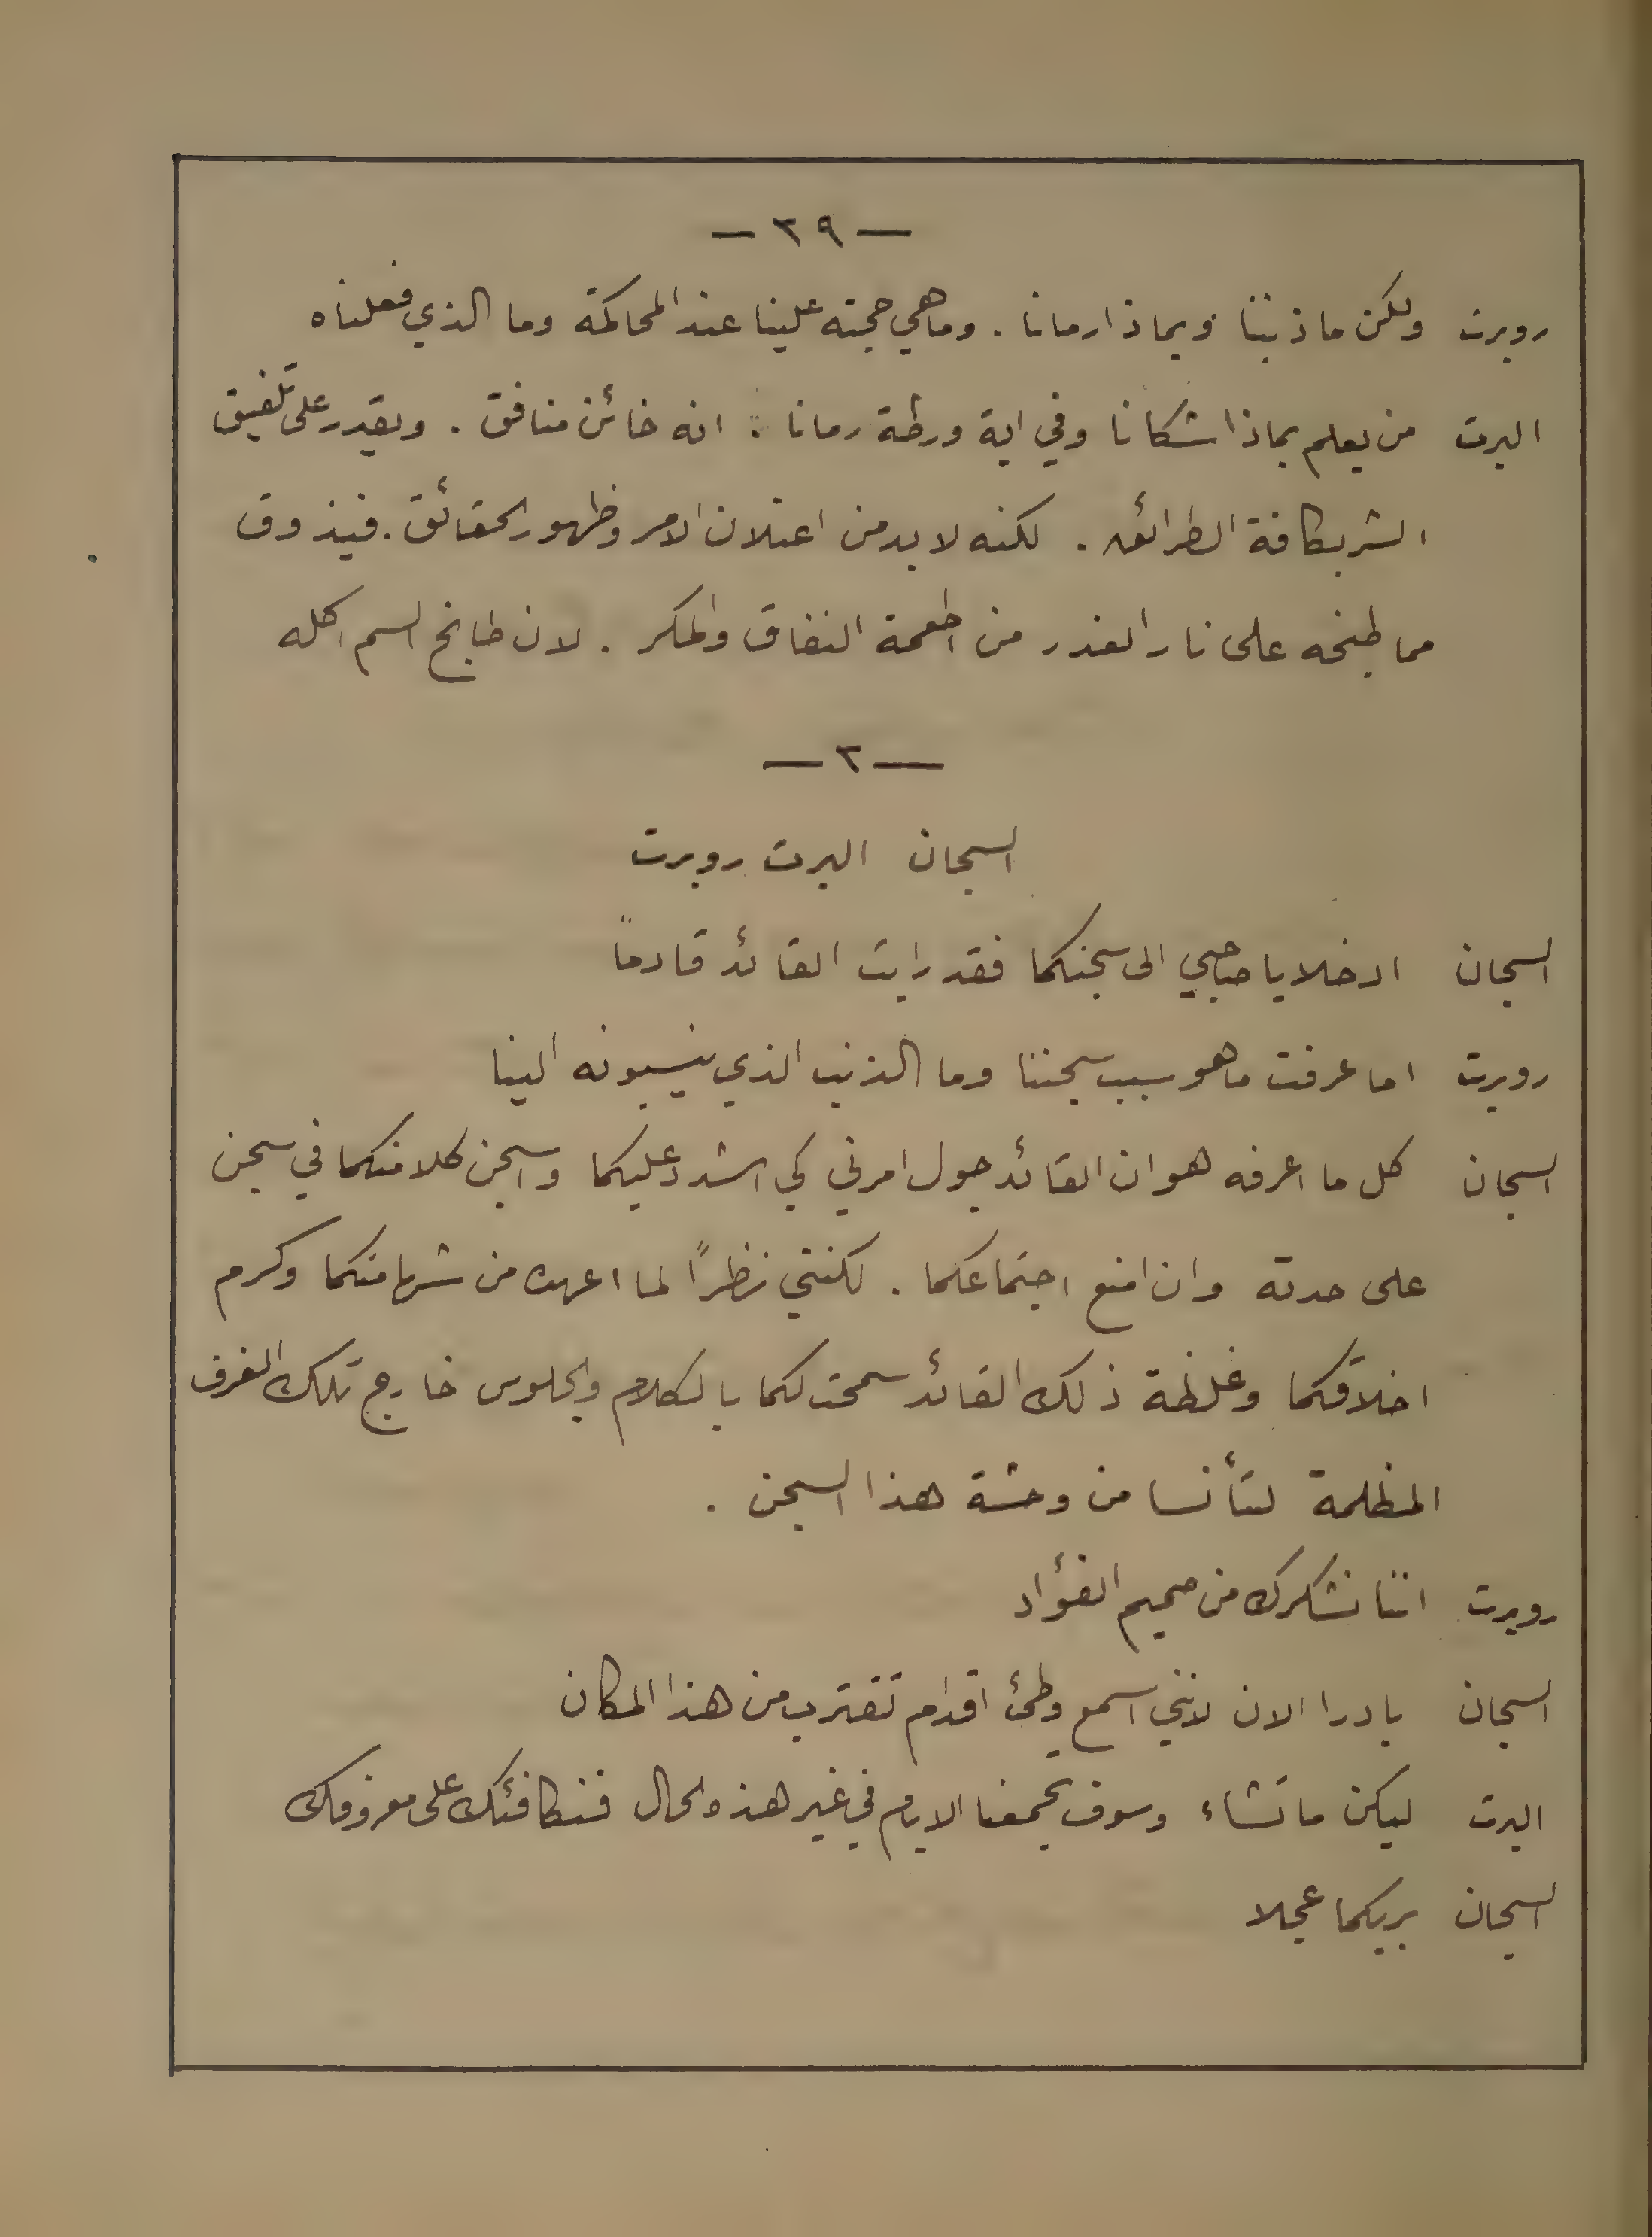 — ٣٩ —
روبرت ولكن ما ذنبنا وبماذا رمانا . وما هي حجته علينا عند المحاكمة وما الذي فعلناه
البرت من يعلم بماذا شكانا وفي اية ورطة رمانا : انه خائن منافق . ويقدر على تلفيق
الشر بكافة الطرائق . لكنه لا بد من اعتلان الامر وظهور الحقائق . فيذوق
مما طبخه على نار الغدر من اطعمة النفاق والمكر . لان طابخ السم اكله
— ٢ —
السجان البرت روبرت
السجان ادخلا يا صاحبي الى سجنكما فقد رايت القائد قادماً
روبرت اما عرفت ما هو سبب سجننا وما الذنب الذي ينسبونه الينا
السجان كل ما اعرفه هو ان القائد جول امرني كي اشدد عليكما واسجن كلا منكما في سجن
على حدته وان امنع اجتماعكما . لكنني نظراً لما اعهده من شهامتكما وكرم
اخلاقكما وغلظة ذلك القائد سمحت لكما بالكلام والجلوس خارج تلك الغرف
المظلمة لتأنسا من وحشة هذا السجن .
روبرت اننا نشكرك من صميم الفؤاد
السجان بادرا الان لانني اسمع وطئ اقدام تقترب من هذا المكان
البرت ليكن ما تشاء وسوف تجمعنا الايام في غير هذه الحال فنكافئك على معروفك
السجان بربكما عجلا